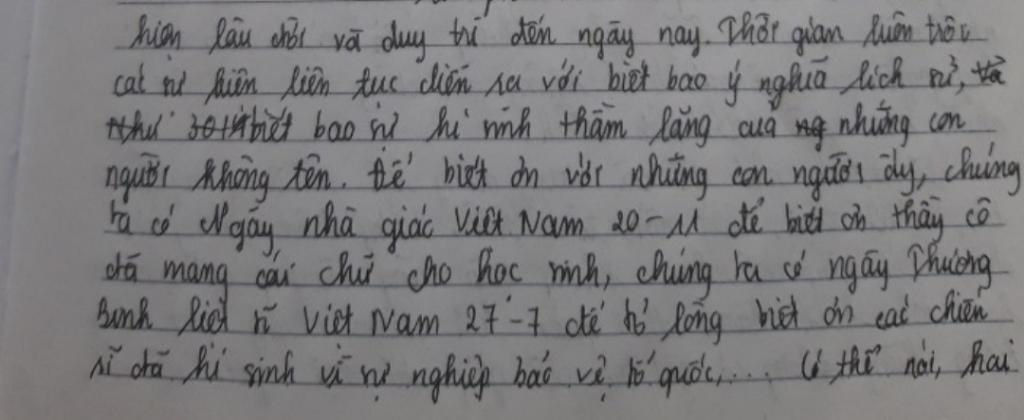 hiện lâu đời và duy trì đến ngày nay. Thời gian luôn trôi
các sự kiện liên tục diễn ra với biết bao ý nghĩa lịch sử,
biết bao sự hi sinh thầm lặng của những con
người không tên. Để biết ơn với những con người ấy, chúng
ta có Ngày nhà giáo Việt Nam 20-11 để biết ơn thầy cô
đã mang cái chữ cho học sinh, chúng ta có ngày Thương
Binh liệt sĩ Việt Nam 27-7 để tỏ lòng biết ơn các chiến
sĩ đã hi sinh vì sự nghiệp bảo vệ tổ quốc,... Có thể nói, hai